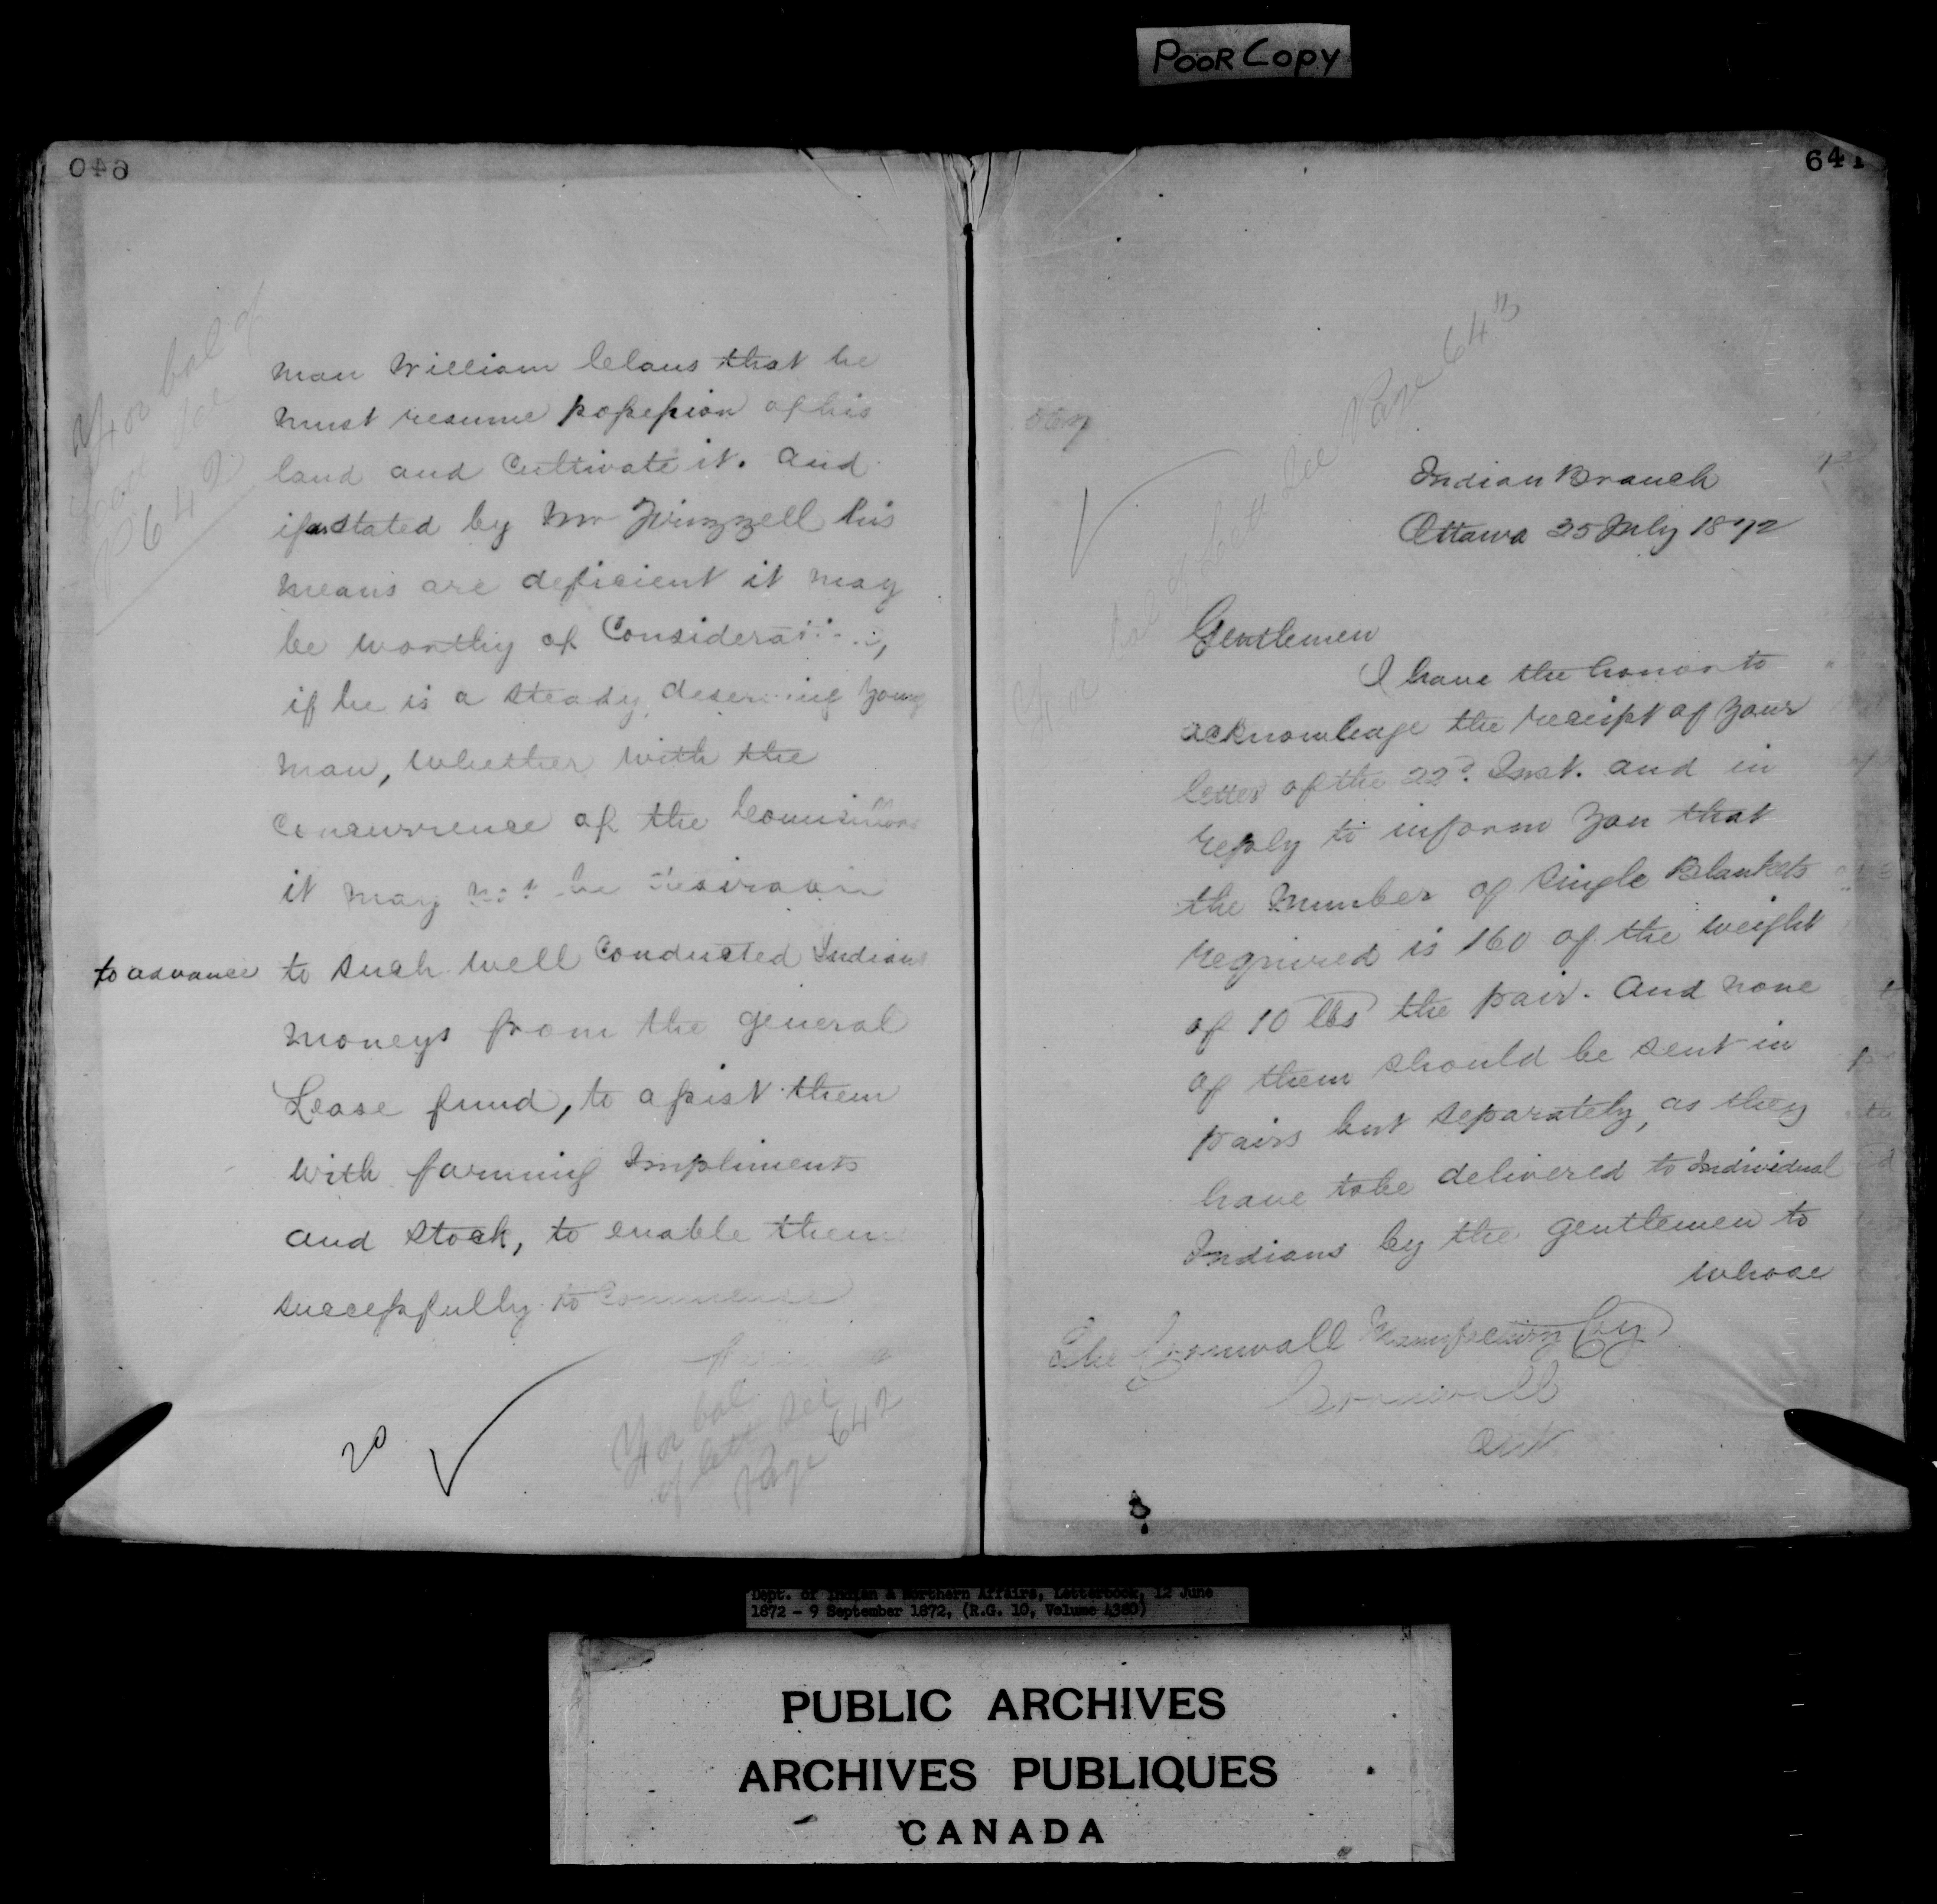 POOR COPY
640
For bal of
lett see
P 642
man William Claus that he
must resume possession of his
land and Cultivate it. and
if as stated by Mr
his
means are deficient it may
be worthy of Consideration,
if he is a steady deserving young
man, whether with the
concurrence of the
it may not be desirable
to advance to such well Conducted Indians
moneys from the general
Lease fund, to assist them
with farming Impliments
and Stock, to enable them
successfully to Commence
farming
20
For bal
of lett see
Page 642
641
For bal of lett see Page 643
Indian Branch
Ottawa 25 July 1872
Gentlemen
I have the honor to
acknowledge the receipt of your
letter of the 22d. Inst. and in
reply to inform you that
the number of single Blankets
required is 160 of the weight
of 10 lbs the pair. And none
of them should be sent in
pairs but separately, as they
have to be delivered to Individual
Indians by the gentlemen to
whose
The Cornwall Manufacturing Coy
Cornwall
Ont
Dept. of Indian & Northern Affairs, Letterbook, 12 June
1872 - 9 September 1872, (R.G. 10, Volume 4380)
PUBLIC ARCHIVES
ARCHIVES PUBLIQUES
CANADA